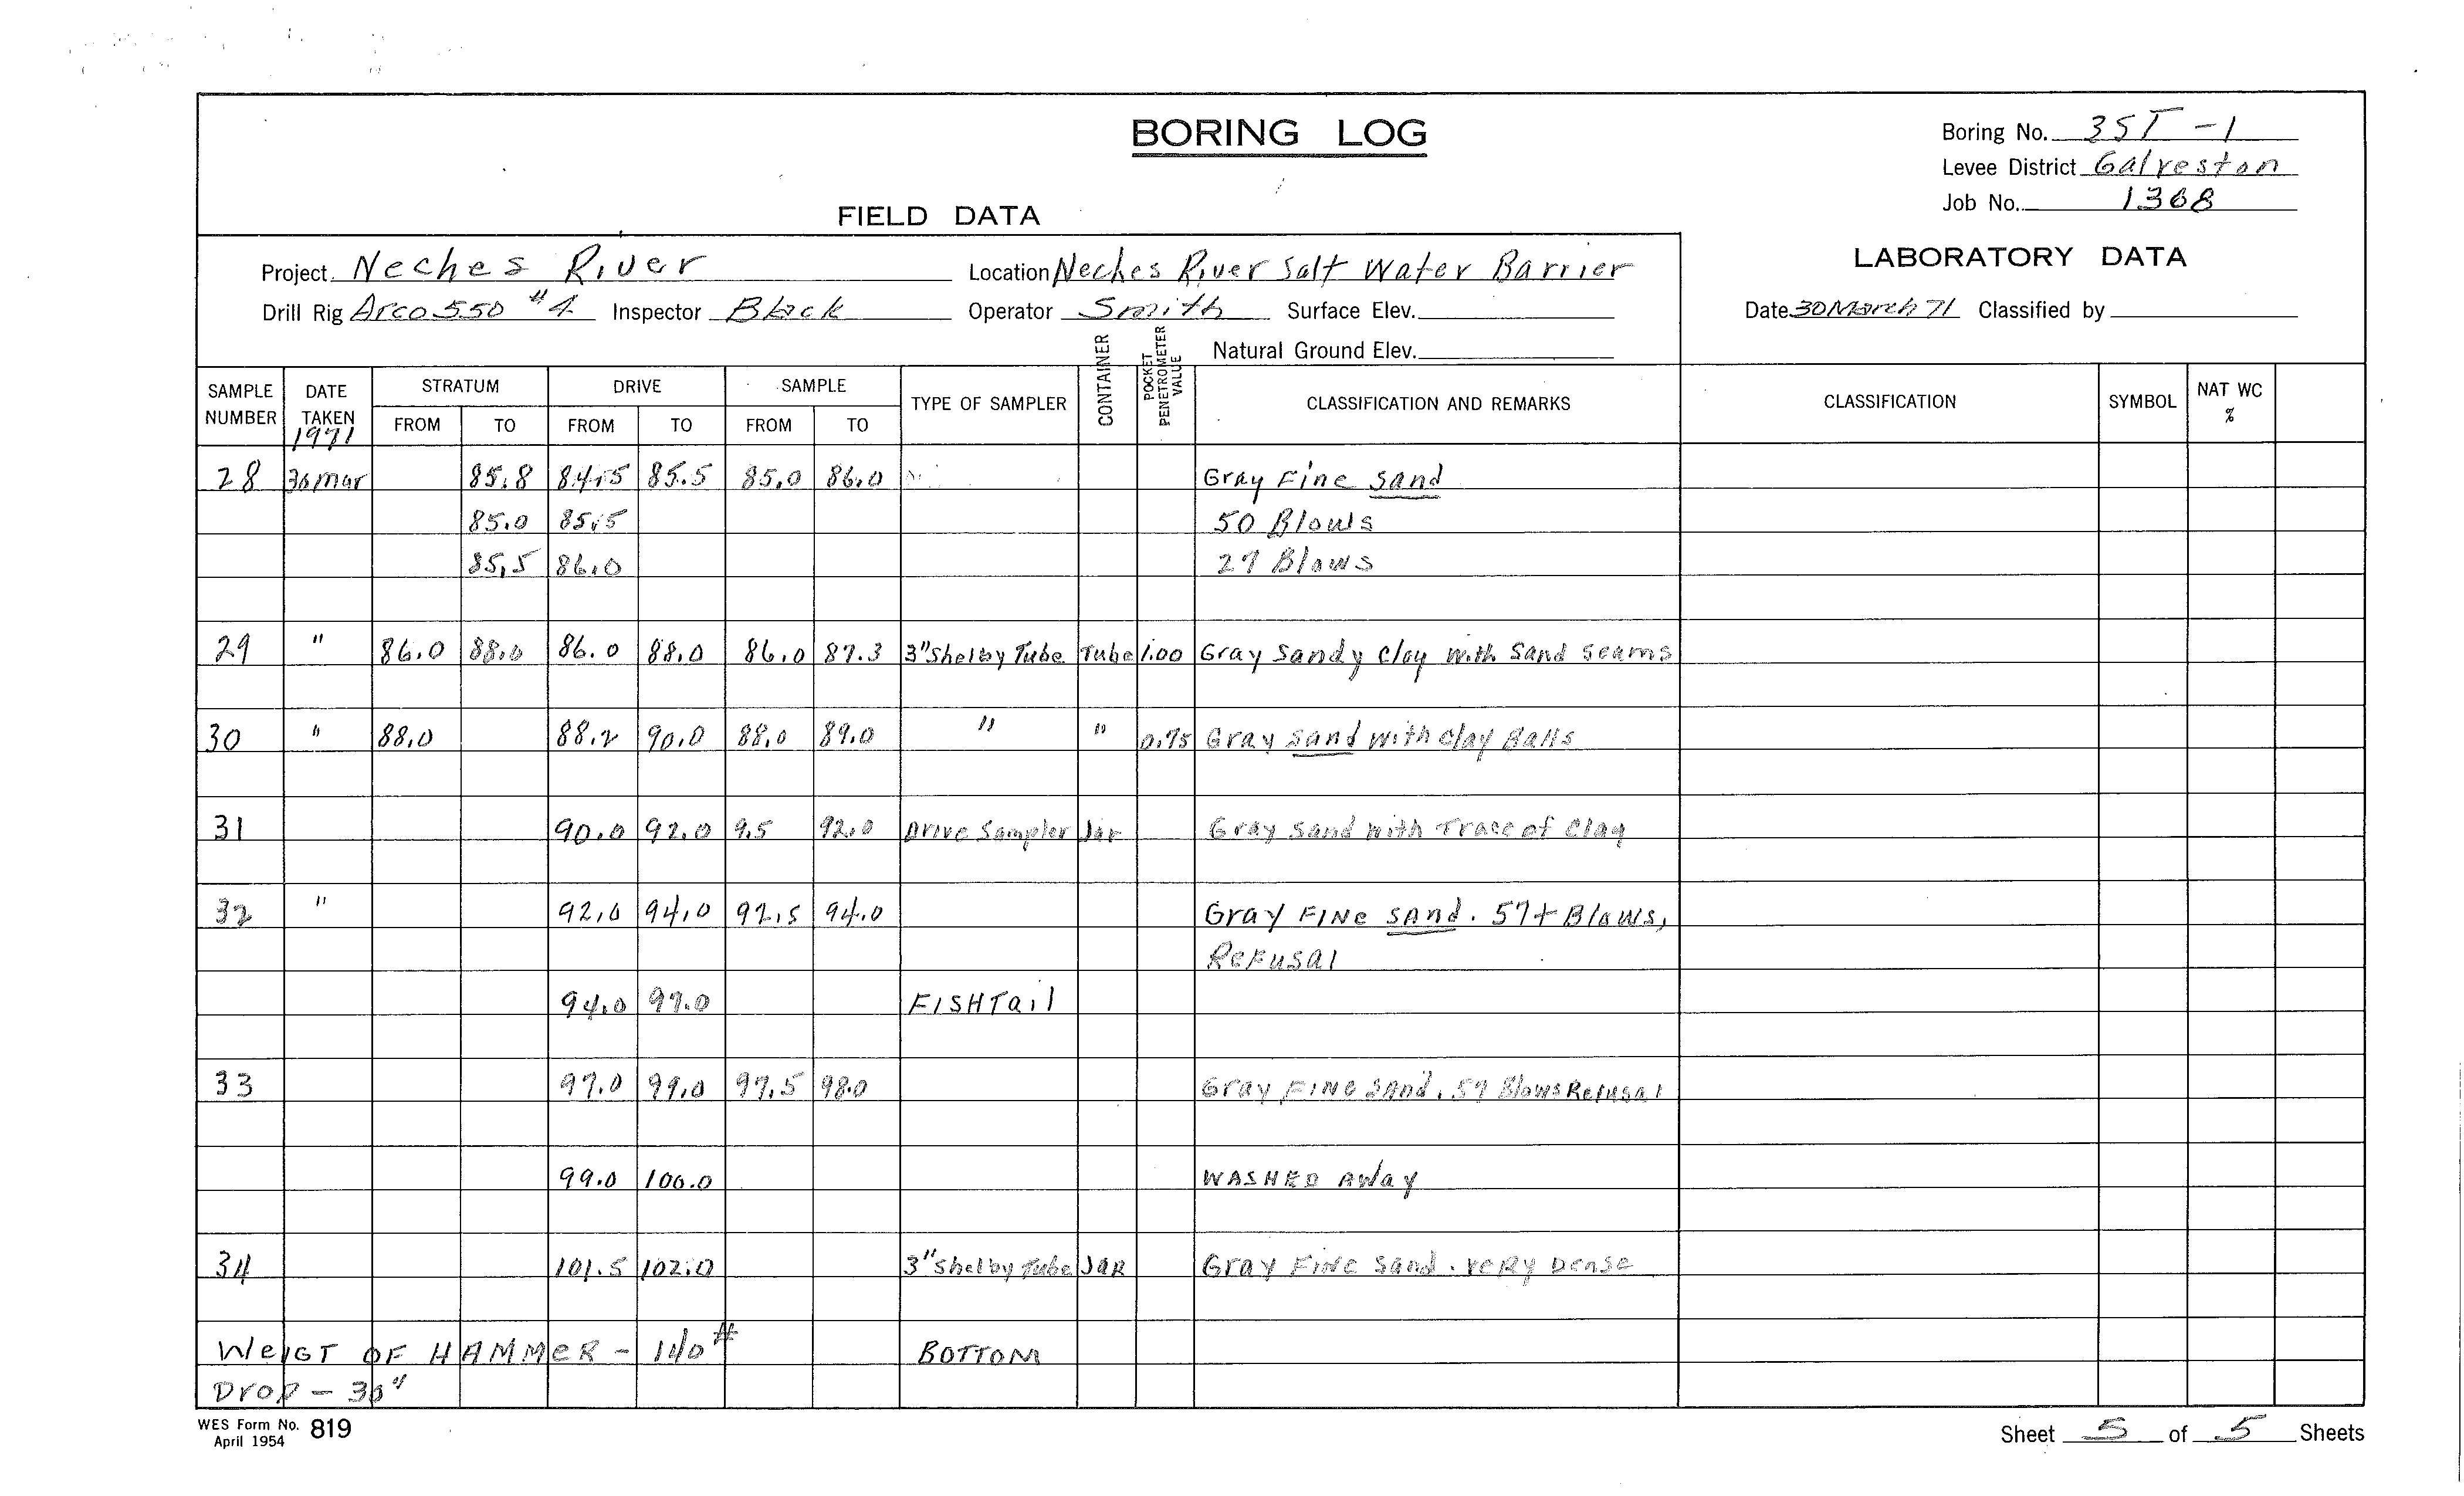 BORING LOG
Boring No. 3ST-1
Levee District Galveston
Job No. 1368
FIELD DATA
LABORATORY DATA
Project Neches River Location Neches River Salt Water Barrier
Drill Rig Arco 550 #4 Inspector Black Operator Smith Surface Elev. Date 30 March 71 Classified by
Natural Ground Elev.
SAMPLE NUMBER DATE TAKEN 1971 STRATUM FROM TO DRIVE FROM TO SAMPLE FROM TO TYPE OF SAMPLER CONTAINER POCKET PENETROMETER VALUE CLASSIFICATION AND REMARKS CLASSIFICATION SYMBOL NAT WC %
28 30 mar 85.8 84.5 85.5 85.0 86.0 Gray Fine Sand
85.0 85.5 50 Blows
85.5 86.0 27 Blows
29 " 86.0 88.0 86.0 88.0 86.0 87.3 3" Shelby Tube Tube 1.00 Gray Sandy Clay with Sand Seams
30 " 88.0 88.2 90.0 88.0 89.0 " " 0.75 Gray Sand with Clay Balls
31 90.0 92.0 9.5 92.0 Drive Sampler Jar Gray Sand with Trace of Clay
32 " 92.0 94.0 92.5 94.0 Gray FINe SAnd. 57+ Blows,
ReFusal
94.0 97.0 FISHTail
33 97.0 99.0 97.5 98.0 Gray FINe Sand. 57 Blows Refusal
99.0 100.0 WASHED AWay
34 101.5 102.0 3" Shelby Tube JaR Gray Fine Sand. veRy Dense
WeIGT OF HAMMeR - 140# BOTTOM
Drop - 30"
WES Form No. 819
April 1954
Sheet 5 of 5 Sheets